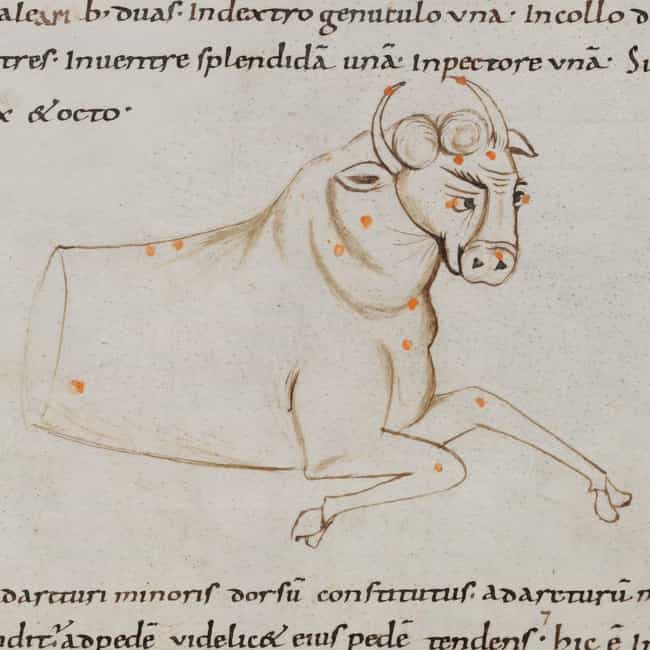 ari b, duas· In dextro genuculo una· In collo d
tres· In uentre splendidā unā· In pectore unā· Su
x &octo·
darcturi minoris dorsū constitutus· ad arcturū m
ndit'· ad pedē videlic& eius pedē tendens· hic ē In
7